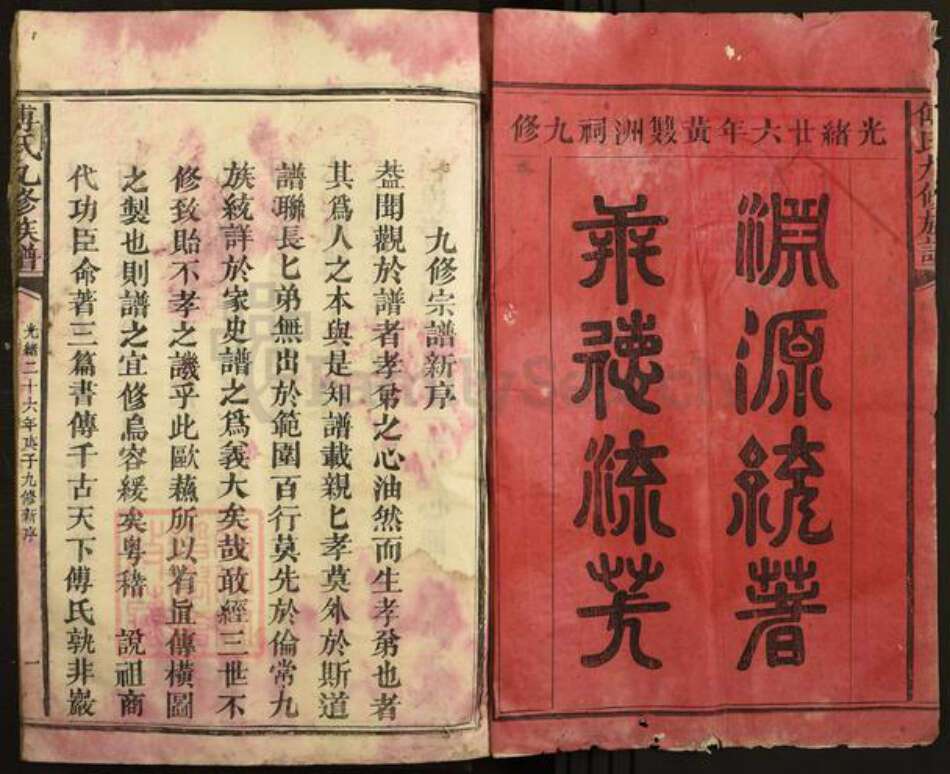 光緒廿六年黃雙洲祠九修
淵源統著
奕德流芳
九修宗譜新序
葢聞觀於譜者孝弟之心油然而生孝弟也者
其爲人之本與是知譜載親匕孝莫外於斯道
譜聯長匕弟無出於範圍百行莫先於倫常九
族統詳於家史譜之爲義大矣哉敢經三世不
修致貽不孝之譏乎此歐蘓所以有直傳橫圖
之製也則譜之宜修烏容緩矣粵稽 說祖商
代功臣命著三篇書傳千古天下傅氏孰非巖
傅氏九修族譜
光緒二十六年庚子九修新序
一